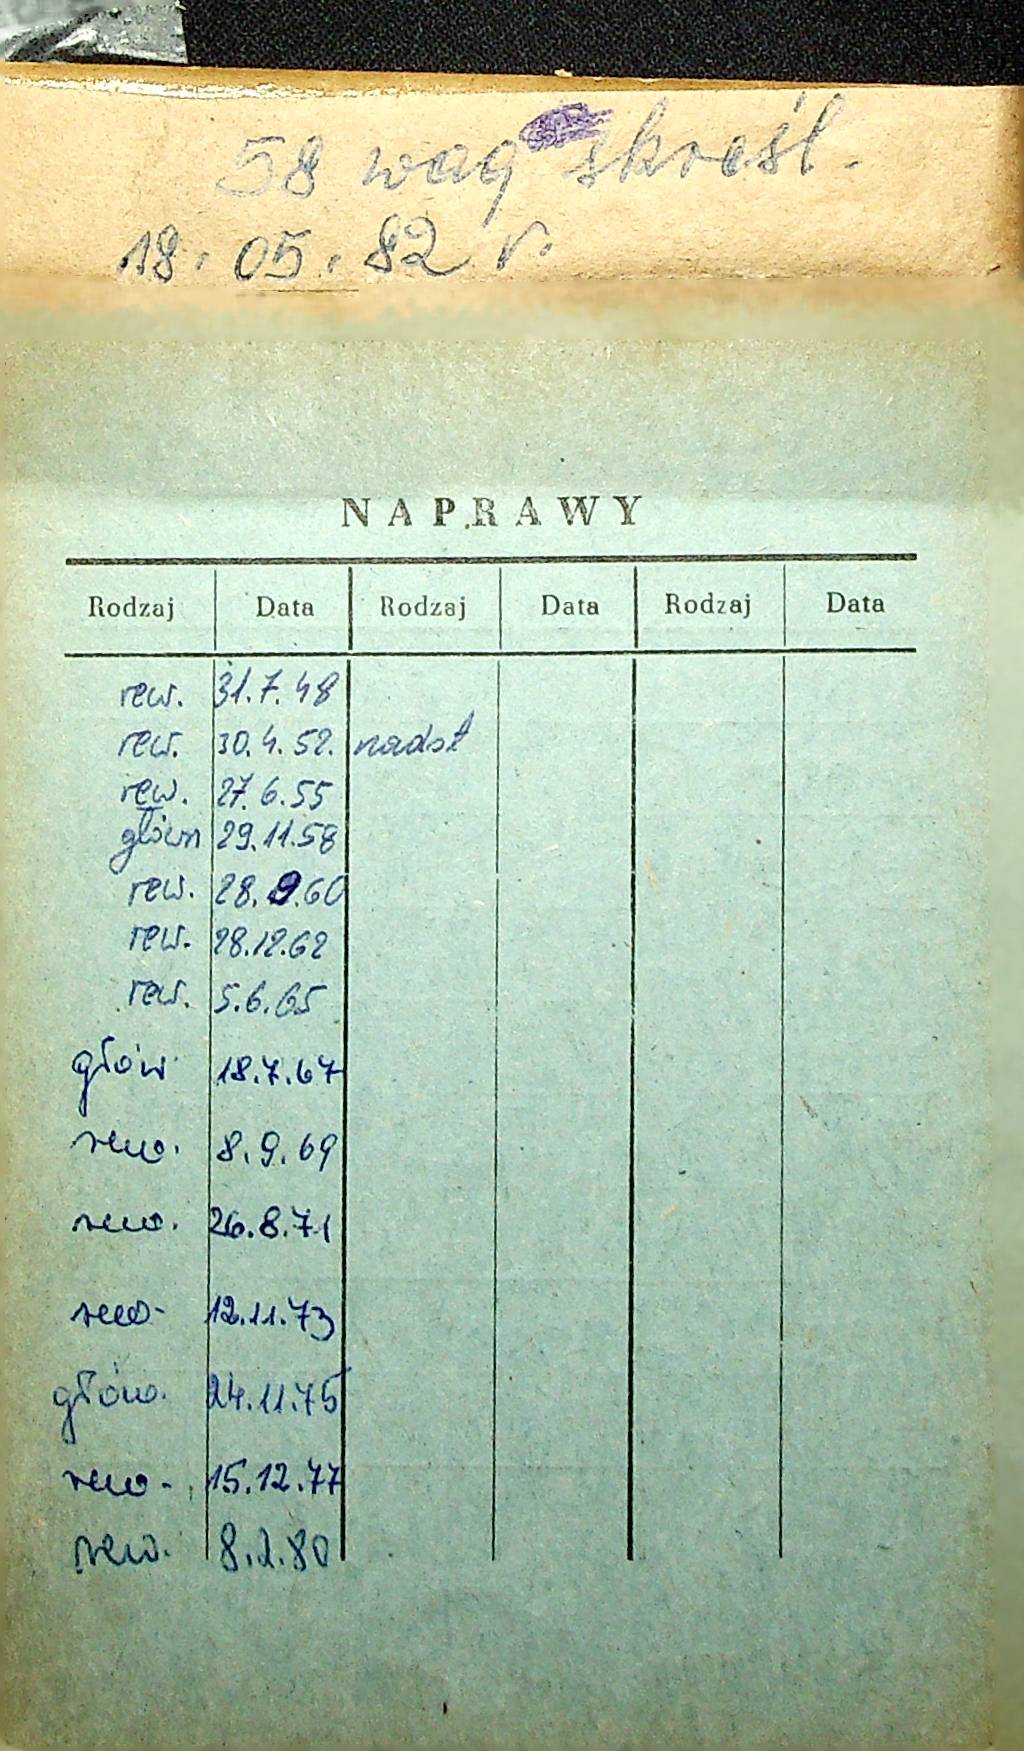 58 wag skreśl.
18.05.82 r.
NAPRAWY
Rodzaj Data Rodzaj Data Rodzaj Data
rew. 31.7.48
rew. 30.4.52. nadst
rew. 27.6.55
główn 29.11.58
rew. 28.9.60
rew. 28.12.62
rew. 5.6.65
głów 18.7.67
rew. 8.9.69
rew. 26.8.71
rew. 12.11.73
głów. 24.11.75
rew. 15.12.77
rew. 8.2.80